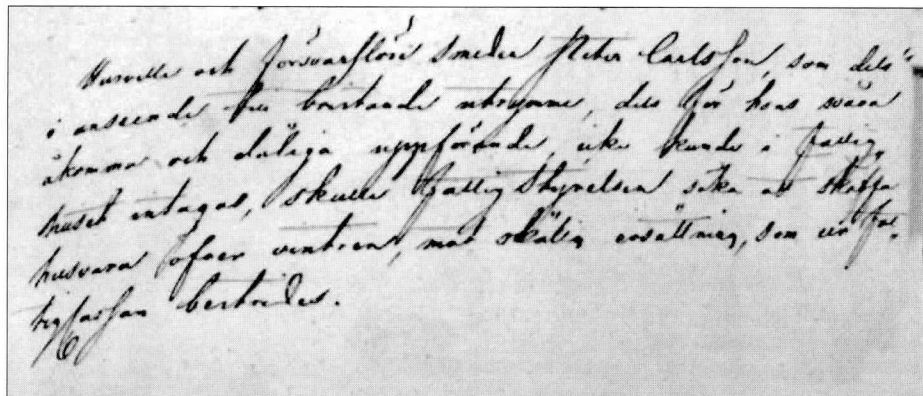 Husville och försvarslöse smeden Peter Carlsson, som dels
i anseende till bristande utrymme, dels för hans svåra
åkomma och dåliga uppförande, icke kunde i fattig„
huset intagas, skulle fattigstyrelsen söka att skaffa
husrum öfver vintren, mot skälig ersättning, som ur fat„
tigkassan bestrides.